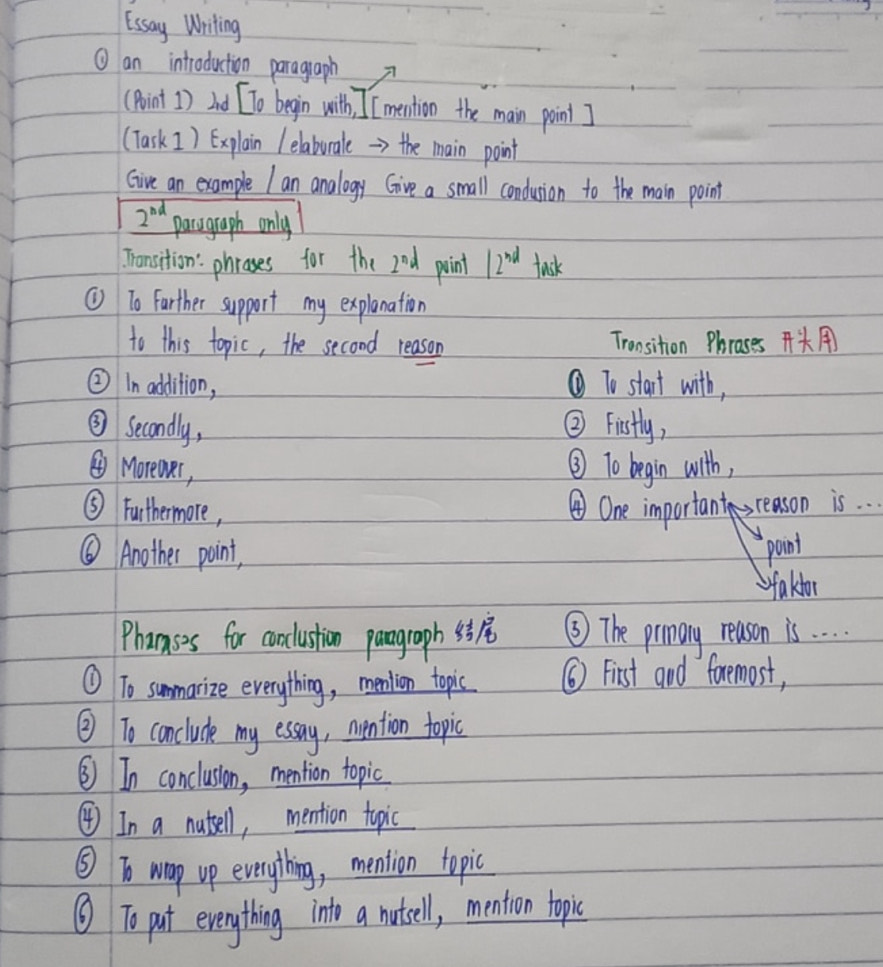 Essay Writing
① an introduction paragraph
(Point 1) 2nd [To begin with,] [mention the main point]
(Task 1) Explain / elaborale → the main point
Give an example / an analogy Give a small condusion to the main point
2nd paragraph only
Transition: phrases for the 2nd point / 2nd task
① To Further support my explanation
to this topic, the second reason
② In addition,
③ Secondly,
④ Moreover,
⑤ Furthermore,
⑥ Another point,
Transition Phrases 开头用
① To start with,
② Firstly,
③ To begin with,
④ One important → reason is ...
point
faktor
⑤ The primary reason is ....
⑥ First and foremost,
Pharases for conclustion paragraph 结尾
① To summarize everything, mention topic
② To conclude my essay, mention topic
③ In conclusion, mention topic
④ In a nutsell, mention topic
⑤ To wrap up everything, mention topic
⑥ To put everything into a nutsell, mention topic